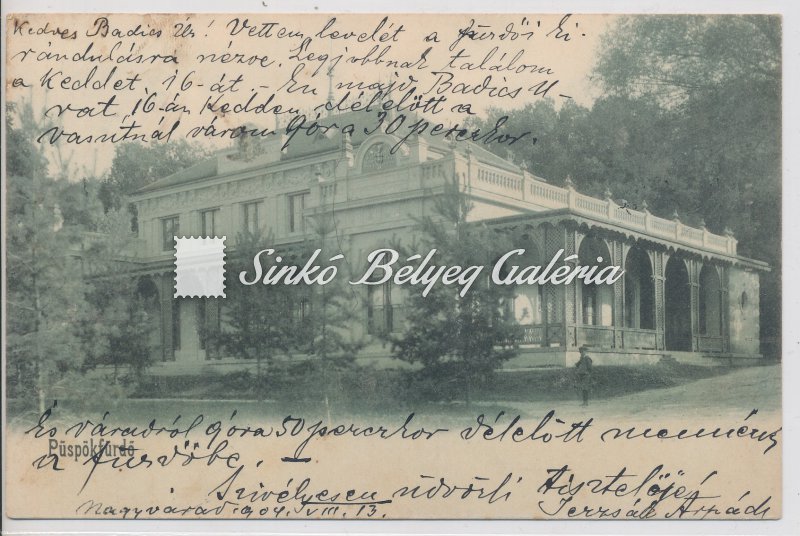 Kedves Badics Úr! Vettem levelét a fürdői ki-
rándulásra nézve. Legjobbnak találom
a Keddet, 16-át - Én majd Badics U-
rat 16-án Kedden délelött a
vasutnál várom 9óra 30 perczkor.
Sinkó Bélyeg Galéria
És váradról 9óra 50 perczkor délelött mennénk
Püspökfürdő
a fürdőbe. —
Szivélyesen üdvözli tisztelője
Nagyvárad 904. VIII. 13. Árpád